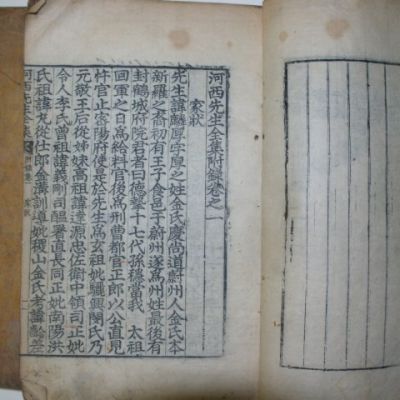 河西先生全集附錄卷之一
家狀
先生諱麟厚字厚之姓金氏慶尙道蔚州人金氏本
新羅之裔初有王子食邑于蔚州遂爲州姓最後有
封鶴城府院君者曰德摯十七代孫穩當我 太祖
回軍之日爲給料官後爲刑曹都官正郎以公直見
忤官止密陽府使是於先生爲玄祖妣驪興閔氏乃
元敬王后從姊妹高祖諱達源忠佐衛中領司正妣
令人李氏曾祖諱義剛司醞署直長同正妣南陽洪
氏祖諱丸從仕郎金溝訓導妣稷山金氏考諱齡差
河西先生全集